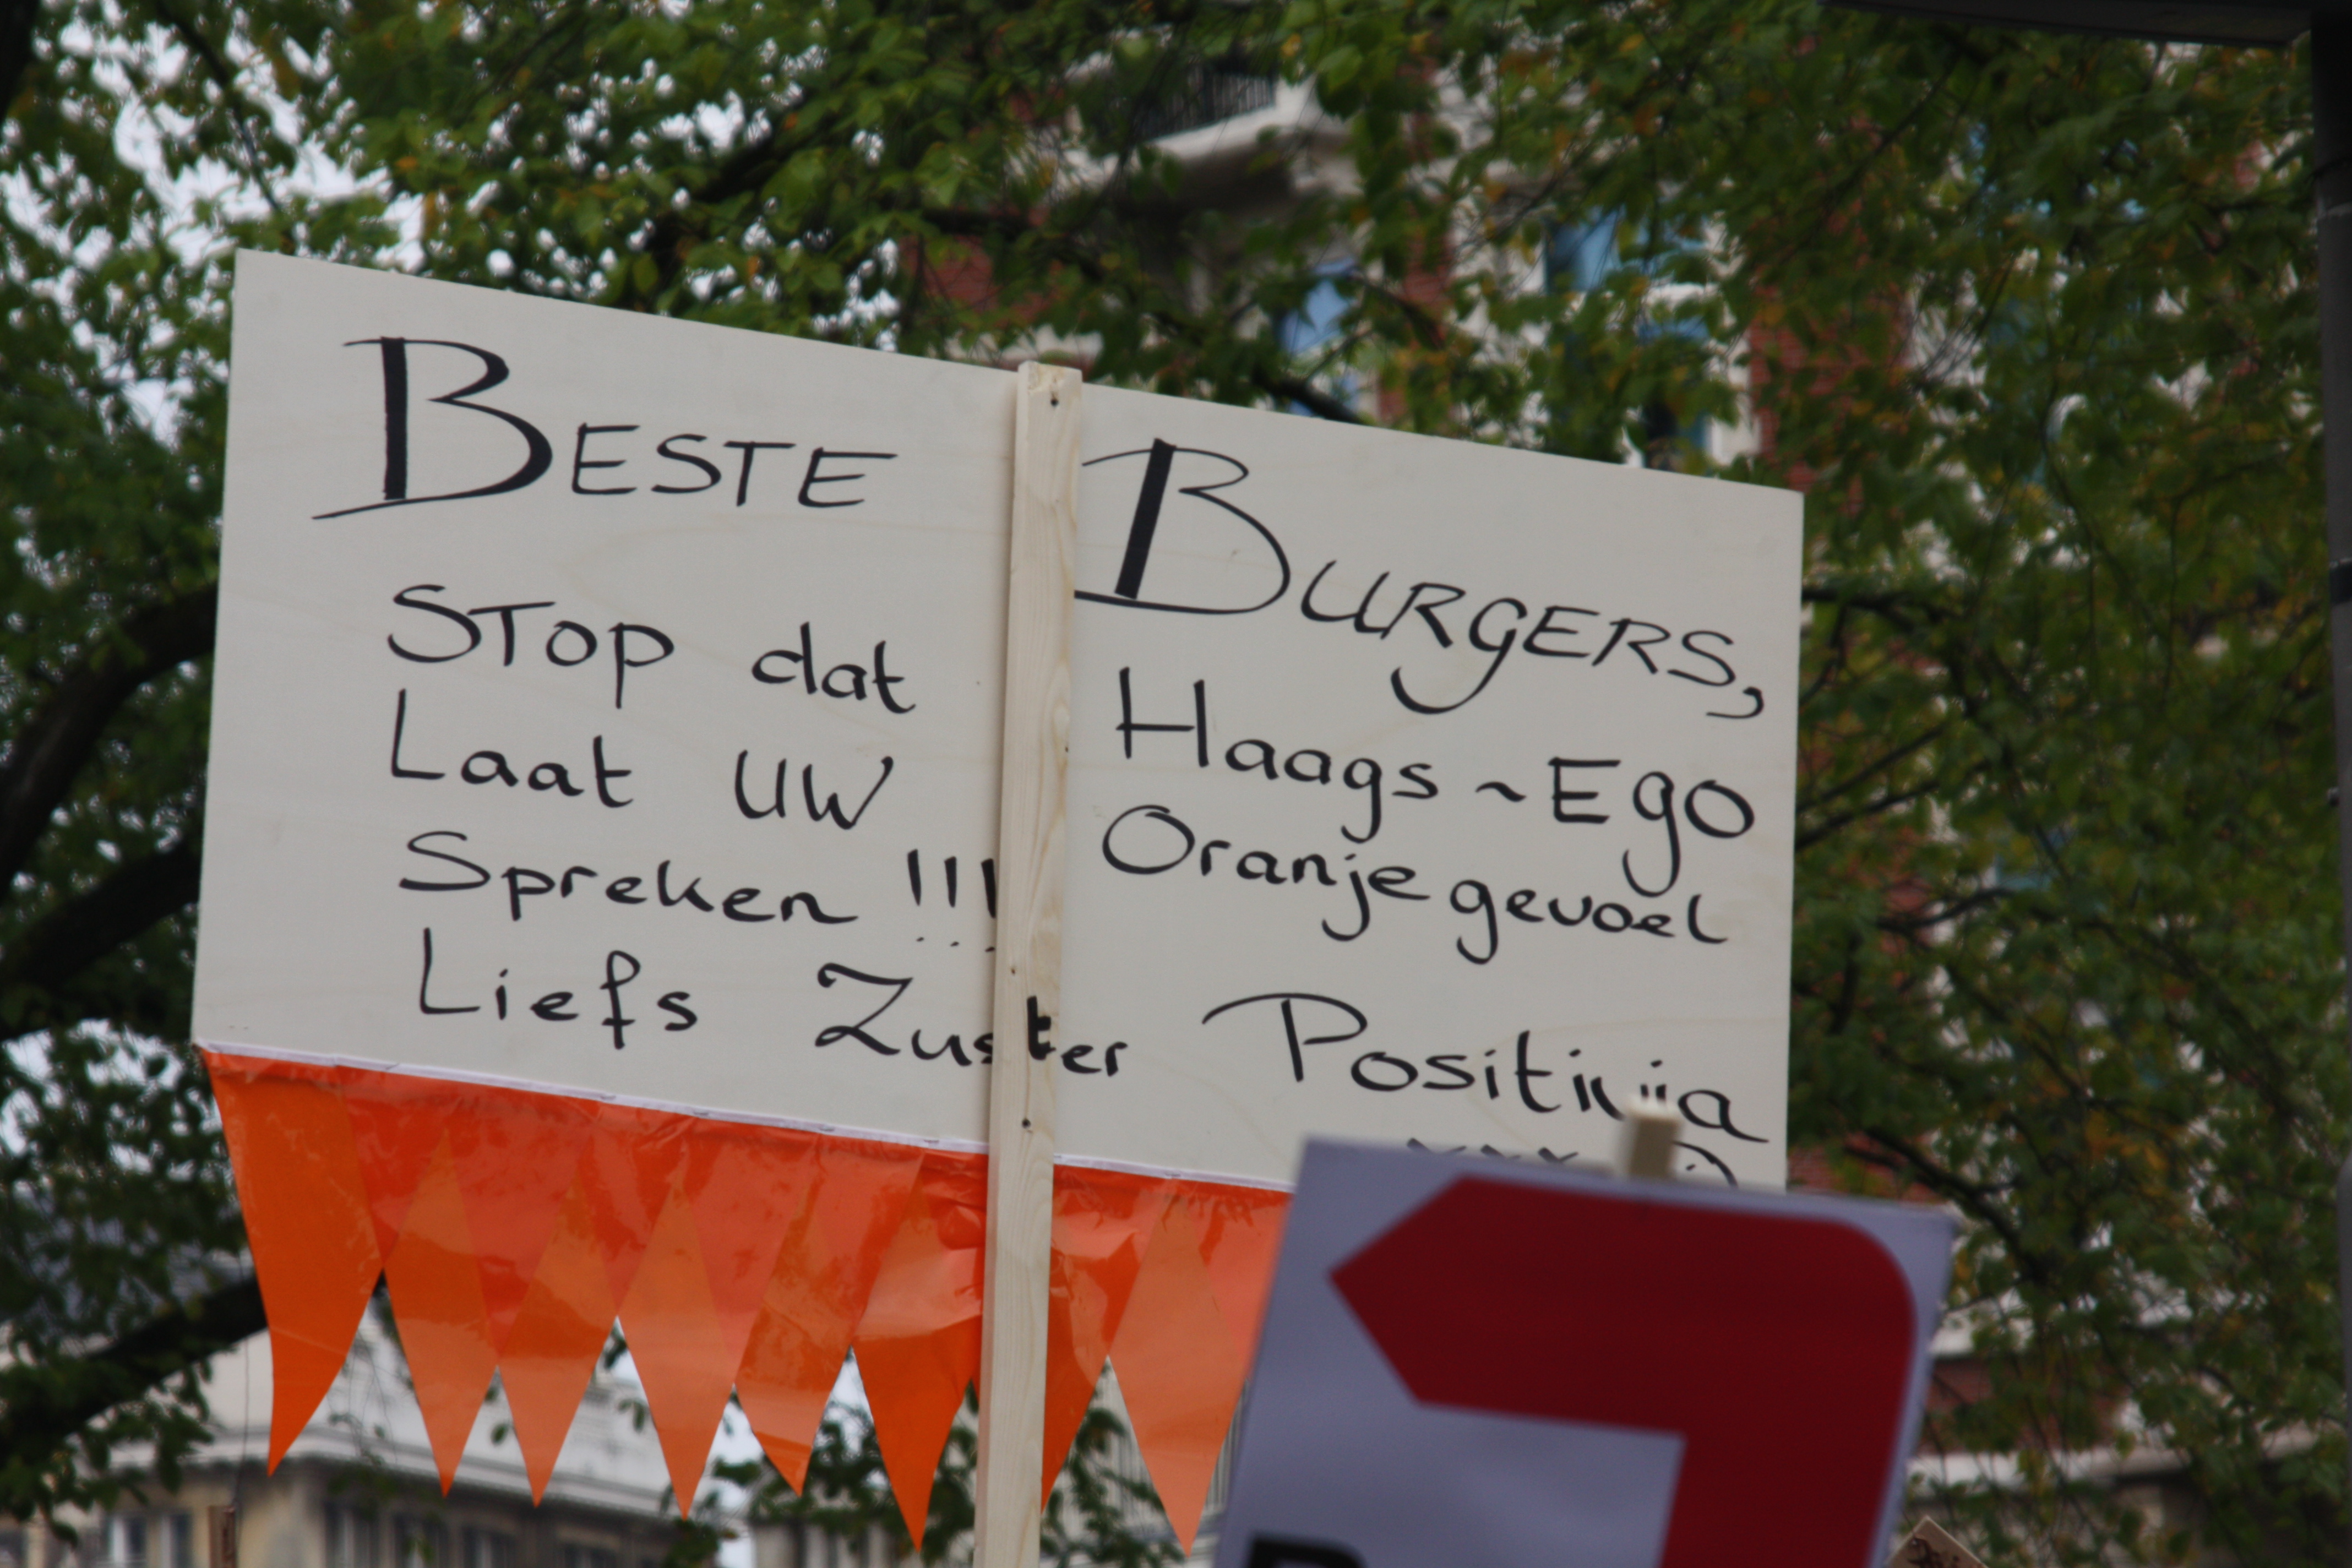 BESTE BURGERS,
STOP dat Haags ~ Ego
Laat UW Oranjegevoel
Spreken !!!
Liefs Zuster Positivia
xxx :)